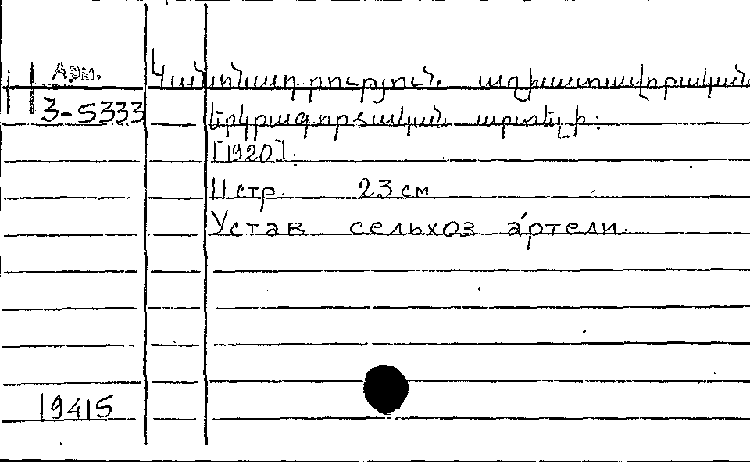 Арм.
Կանոնադրություն աշխատավորական
3-5333
երկրագործական արտելի:
[1920].
11 стр. 23 см
Устав сельхоз артели.
19415